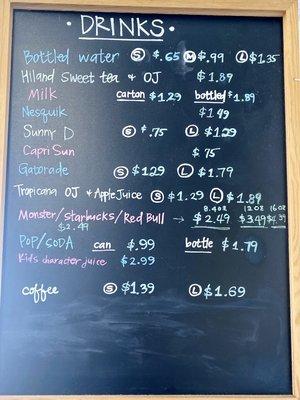 · DRINKS ·
Bottled water Ⓢ $.65 Ⓜ $.99 Ⓛ $1.35
Hiland Sweet tea & OJ $1.89
Milk carton $1.29 bottled $1.89
Nesquik $1.49
Sunny D Ⓢ $.75 Ⓛ $1.29
Capri Sun $.75
Gatorade Ⓢ $1.29 Ⓛ $1.79
Tropicana OJ & Apple Juice Ⓢ $1.29 Ⓛ $1.89
8.4oz 12oz 16oz
Monster/Starbucks/Red Bull → $2.49 $3.49 $4.39
$2.49
POP/SODA can $.99 bottle $1.79
Kids character juice $2.99
coffee Ⓢ $1.39 Ⓛ $1.69